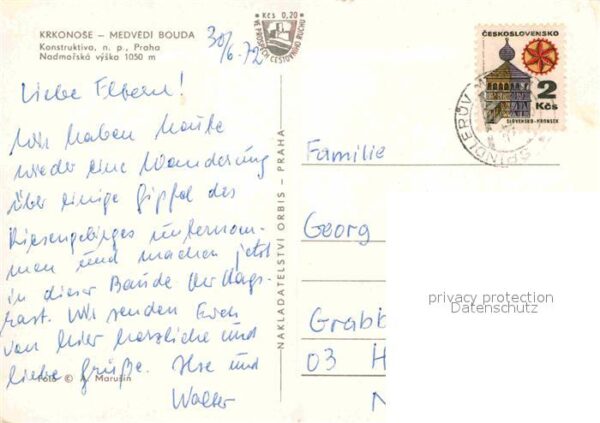 KRKONOŠE — MEDVĚDÍ BOUDA
Konstruktiva, n. p., Praha
Nadmořská výška 1050 m
30/6.72
Kčs 0,20
VE PROSPĚCH CESTOVNÍHO RUCHU
ČESKOSLOVENSKO
2
Kčs
SLOVENSKO-KRONSEK
ŠPINDLERŮV M
Liebe Eltern!
Wir haben heute
wieder eine Wanderung
über einige Gipfel des
Riesengebirges unternom-
men und machen jetzt
in dieser Baude Mittags-
rast. Wir senden Euch
von hier herzliche und
liebe Grüße. Ilse und
Walter
Foto © A. Marušin
NAKLADATELSTVÍ ORBIS – PRAHA
Familie
Georg
Grabb
03 H
N
privacy protection
Datenschutz